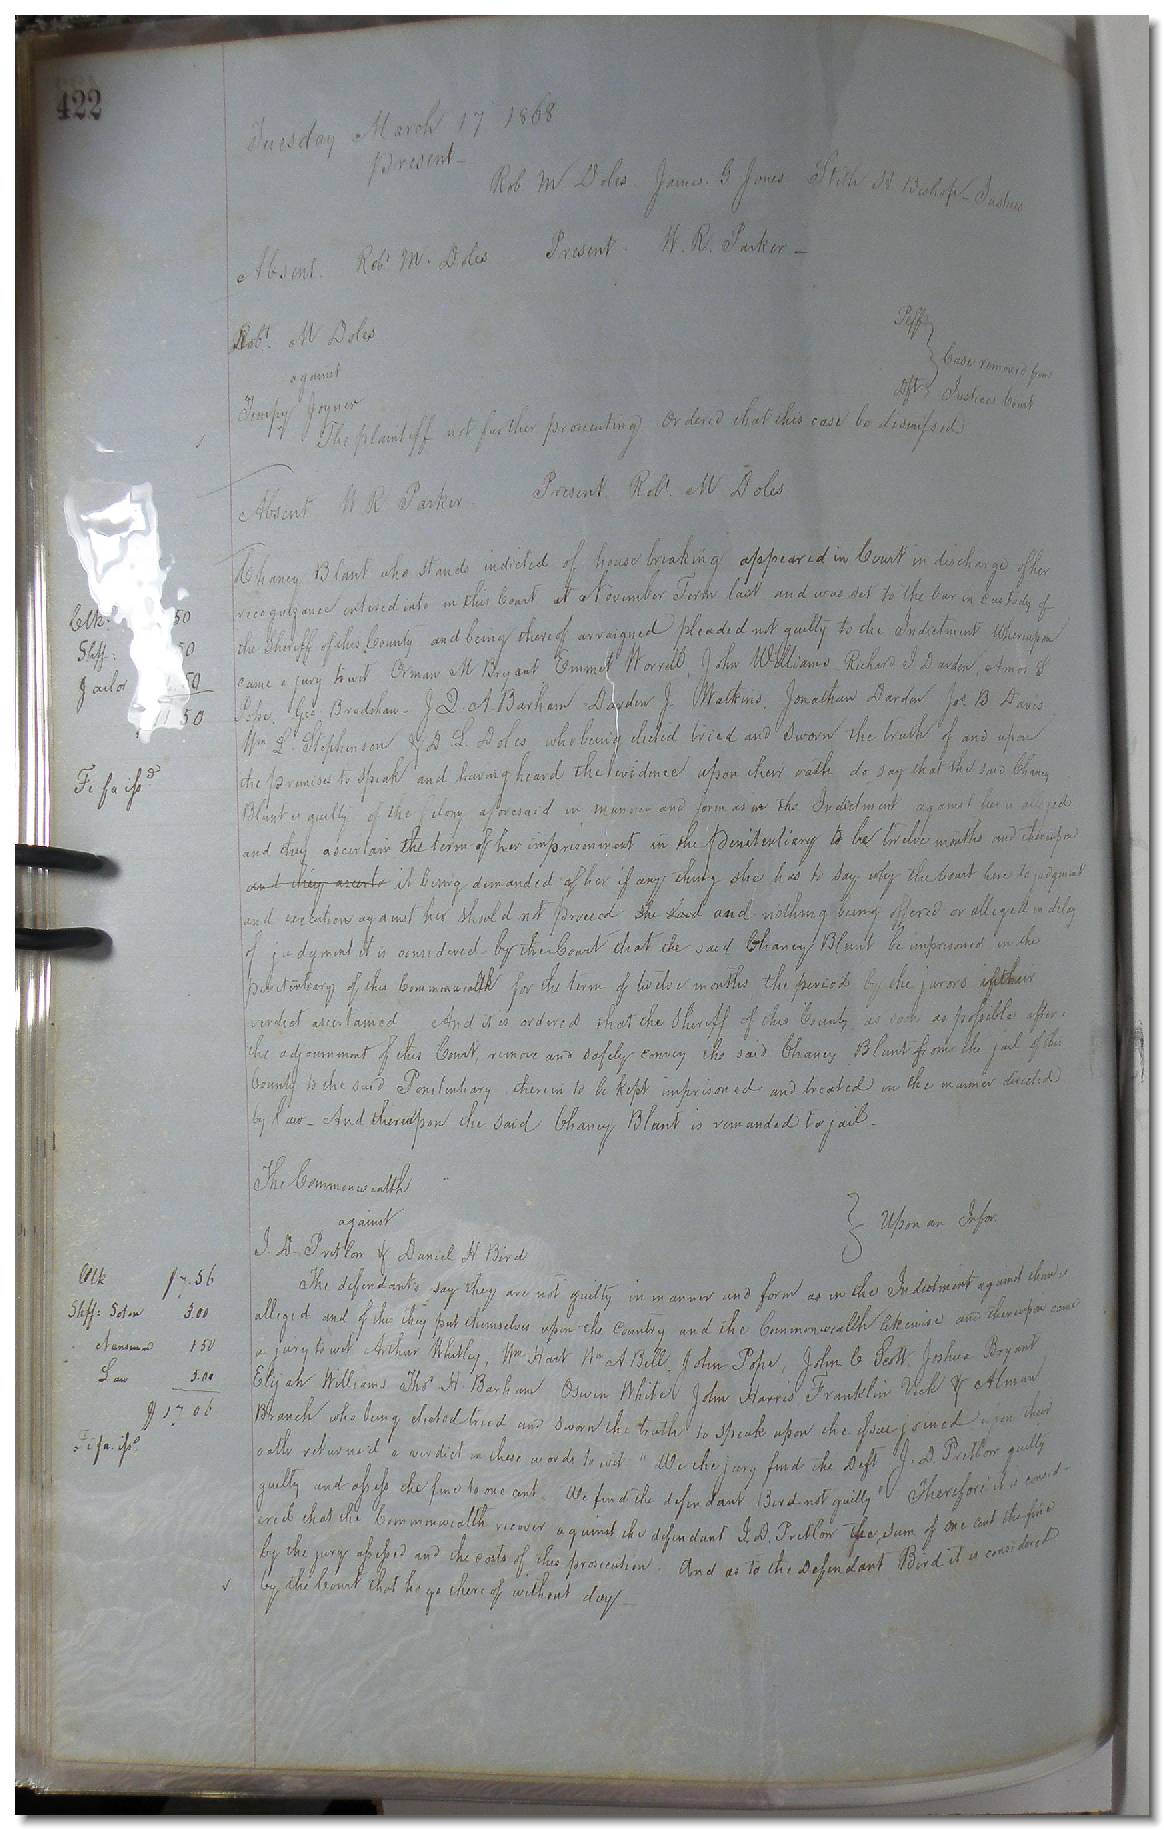 422
Tuesday March 17 1868
Present -
Rob M Doles. James. G Jones Stith H. Bishop - Justices
Absent. Robt M. Doles Present. W. R. Parker -
Robt. M Doles Plff
against Case removed from
Tempy Joyner Dft Justices Court
The plaintiff not further prosecuting Ordered that this case be dismissed
Absent W R Parker Present Robt. M Doles
Chaney Blunt who stands indicted of house breaking appeared in Court in discharge of her
recognizance entered into in this Court at November Term last and was set to the bar in custody of
Clk. 50
the Sheriff of this County and being thereof arraigned pleaded not guilty to the Indictment Whereupon
Shff: 50
came a jury to wit Orman M Bryant Emmet Worrell, John Williams Richard J. Darden, Amos
Jailor 50
Pope, Geo, Bradshaw - J. Q. A Barham Darden J. Watkins, Jonathan Darden Jos. B Davis
50
Wm L. Stephenson & D. L. Doles who being elected tried and sworn the truth of and upon
the premises to speak and having heard the evidence upon their oath do say that the said Chaney
Fi fa issd
Blunt is guilty of the felony aforesaid in manner and form as in the Indictment against her is alleged
and they ascertain the term of her imprisonment in the Penitentiary to be twelve months and thereupon
and they ascert it being demanded of her if any thing she has to say why the Court here to judgment
and execution against her should not proceed she said and nothing being offered or alleged in delay
of judgment it is considered by the Court that the said Chaney Blunt be imprisoned in the
penitentiary of this Commonwealth for the term of twelve months the period by the jurors in their
verdict ascertained And it is ordered that the Sheriff of this County as soon as possible after
the adjournment of this Court, remove and safely convey the said Chaney Blunt from the jail of this
County to the said Penitentiary therein to be kept imprisoned and treated in the manner directed
by law - And thereupon the said Chaney Blunt is remanded to jail -
The Commonwealth
against Upon an Infor.
J. D. Pretlow & Daniel H Bird
The defendants say they are not guilty in manner and form as in the Indictment against them is
Clk 17.56
alleged and of this they put themselves upon the Country and the Commonwealth likewise and thereupon came
Shff: Soton 3.00
a jury to wit Arthur Whitley, Wm Hart Wm A Bell, John Pope, John C Scott Joshua Bryant
Nansemond 1 50
Elijah Williams Thos H. Barham Oswin White John Harris Franklin Vick & Alman
Law 5.00
Branch who being elected tried and sworn the truth to speak upon the issue joined upon their
oath returned a verdict in these words to wit "We the jury find the Deft J. D. Pretlow guilty
Fi fa isso
guilty and assess the fine to one cent. We find the defendant Bird not guilty" Therefore it is consid-
ered that the Commonwealth recover against the defendant J. D. Pretlow the sum of one cent the fine
by the jury assessed and the costs of this prosecution. And as to the Defendant Bird it is considered
by the Court that he go thereof without day -